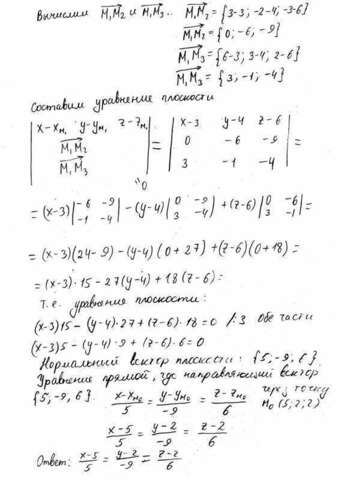 Вычислим M₁M₂ и M₁M₃. M₁M₂ = {3-3; -2-4; -3-6}
M₁M₂ = {0; -6; -9}
M₁M₃ = {6-3; 3-4; 2-6}
M₁M₃ = {3; -1; -4}
Составим уравнение плоскости
| x-xM₁ y-yM₁ z-zM₁ | = | x-3 y-4 z-6 | =
| M₁M₂ | | 0 -6 -9 |
| M₁M₃ | | 3 -1 -4 |
"0
= (x-3) |-6 -9; -1 -4| - (y-4) |0 -9; 3 -4| + (z-6) |0 -6; 3 -1| =
= (x-3)(24-9) - (y-4)(0+27) + (z-6)(0+18) =
= (x-3)·15 - 27(y-4) + 18(z-6) =
Т.е. уравнение плоскости:
(x-3)15 - (y-4)·27 + (z-6)·18 = 0 /:3 обе части
(x-3)5 - (y-4)·9 + (z-6)·6 = 0
Нормальный вектор плоскости: {5; -9; 6}
Уравнение прямой, где направляющий вектор
{5, -9, 6}. (x-xM₀)/5 = (y-yM₀)/-9 = (z-zM₀)/6 через точку M₀(5; 2; 2)
(x-5)/5 = (y-2)/-9 = (z-2)/6
Ответ: (x-5)/5 = (y-2)/-9 = (z-2)/6